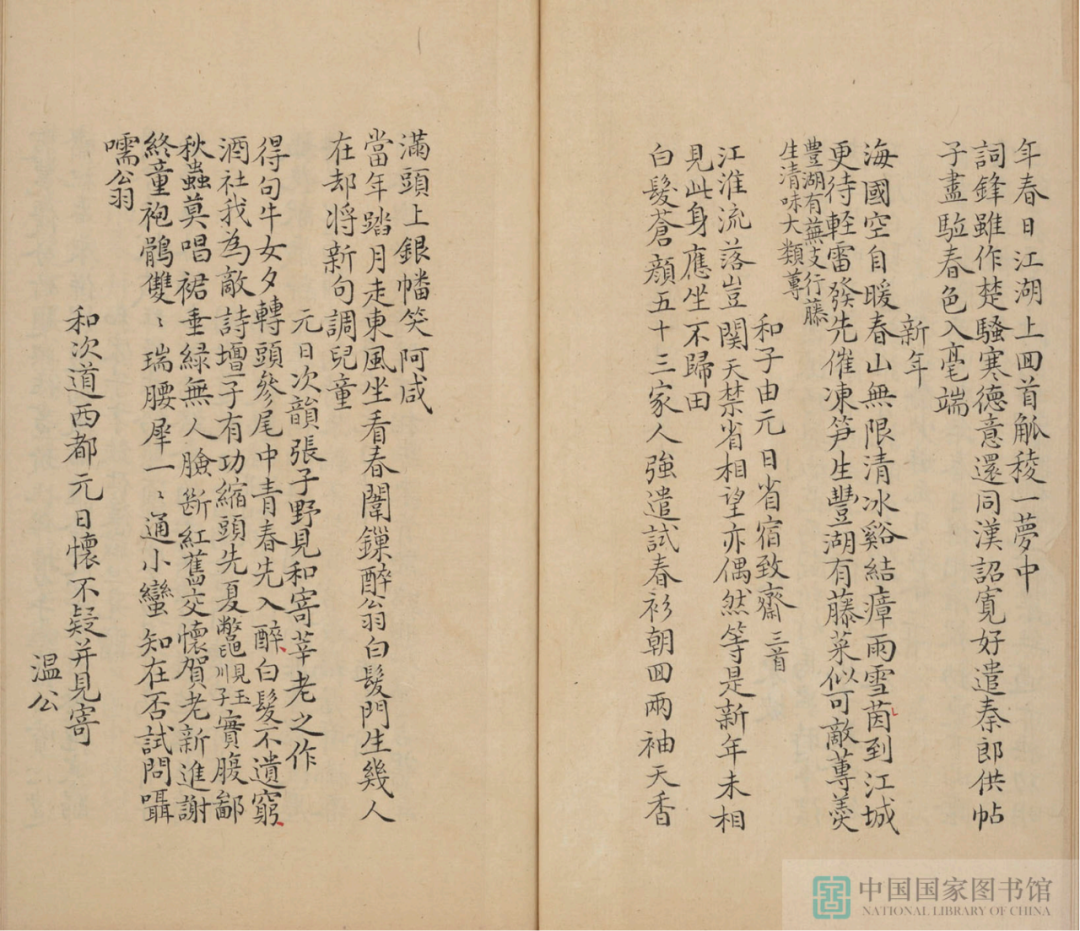 年春日江湖上回首觚稜一夢中
詞鋒雖作楚騷寒德意還同漢詔寬好遣秦郎供帖
子盡驅春色入毫端
新年
海國空自暖春山無限清冰谿結瘴雨雪茵到江城
更待軽雷發先催凍笋生豐湖有藤菜似可敵蓴羮
豊湖有蕪支行藤
生清味大類蓴
和子由元日省宿致齋三首
江淮流落豈関天禁省相望亦偶然等是新年未相
見此身應坐不歸田
白髮蒼顔五十三家人強遣試春衫朝回兩袖天香
滿頭上銀幡笑阿咸
當年踏月走東風坐看春闈鏁醉翁白髮門生幾人
在却将新句調兒童
元日次韻張子野見和寄莘老之作
得句牛女夕轉頭參尾中青春先入醉白髮不遺窮
酒社我為敵詩壇子有功縮頭先夏鼈實腹鄙
秋蟲莫唱裙垂緑無人臉断紅舊交懷賀老新進謝
終童袍鶻雙〻瑞腰犀一〻通小蠻知在否試問囁
嚅翁
和次道西都元日懷不疑并見寄
温公
中国国家图书馆
NATIONAL LIBRARY OF CHINA